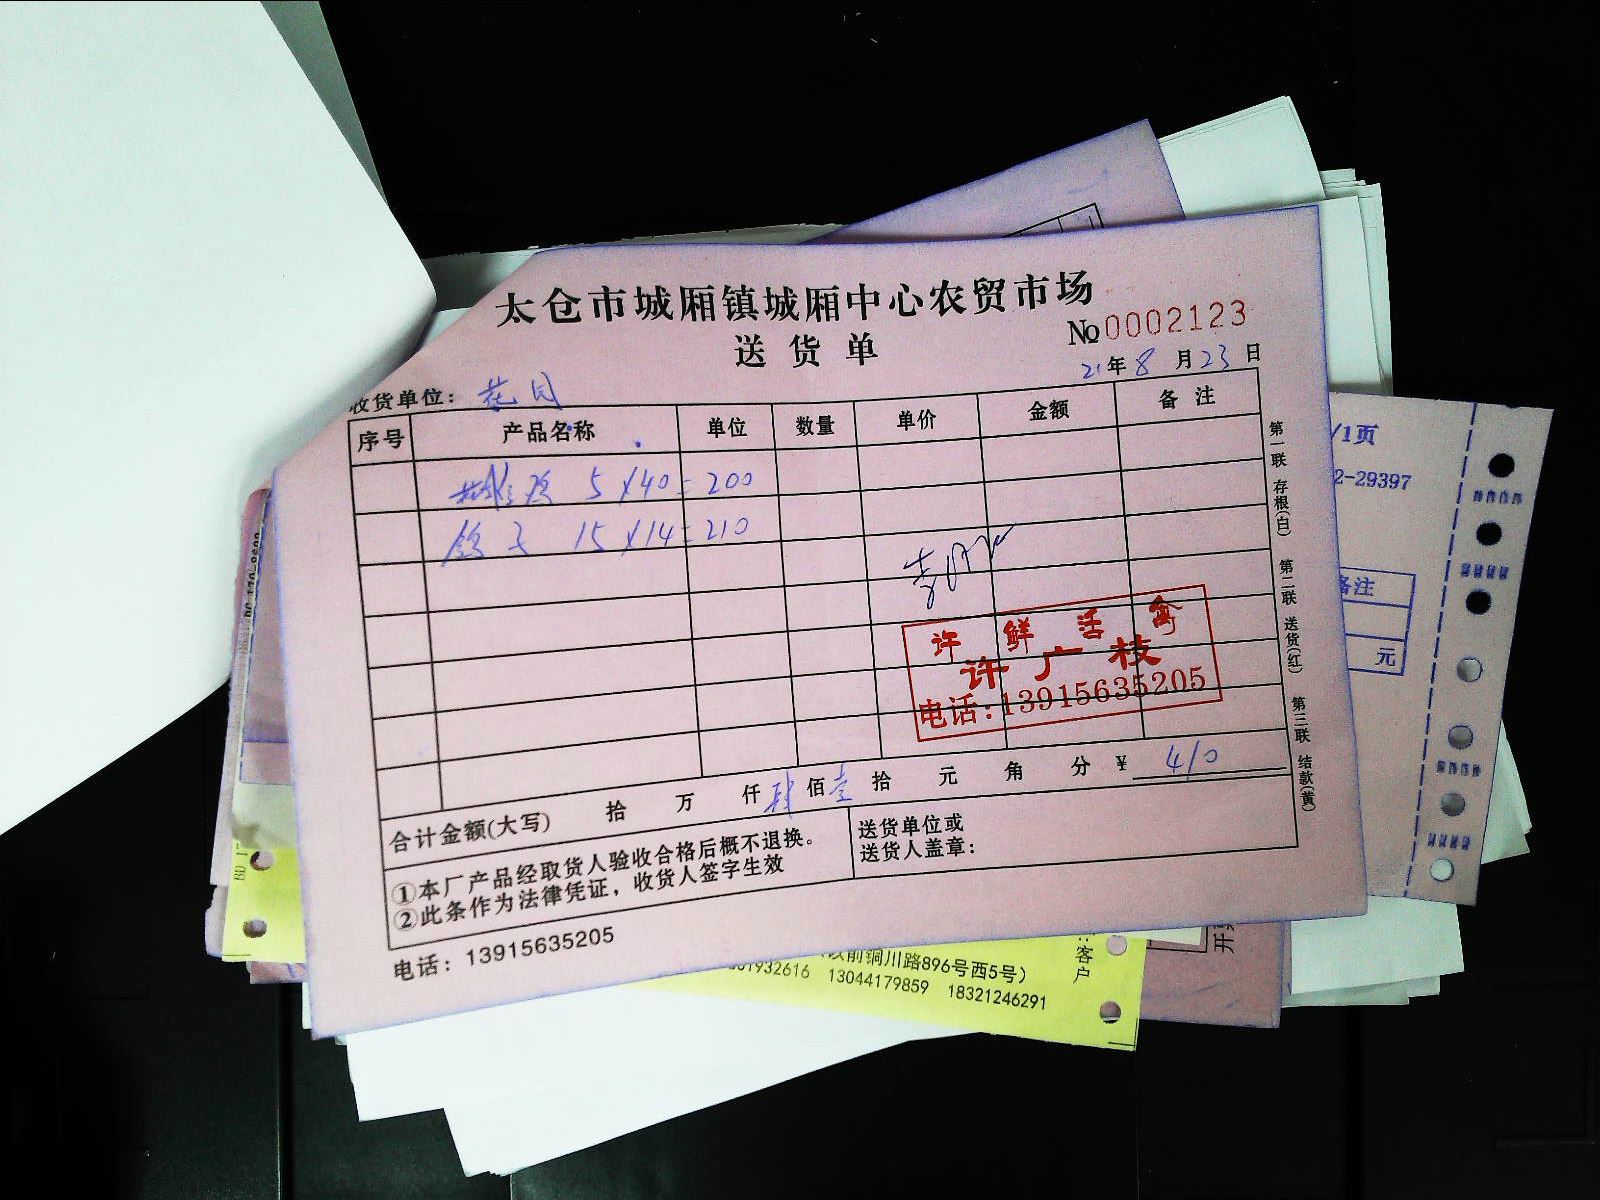 太仓市城厢镇城厢中心农贸市场
送货单
No 0002123
21年8月23日
收货单位：花园
序号 产品名称 单位 数量 单价 金额 备注
5×40=200
鸽子 15×14=210
许鲜活禽
许广枝
电话:13915635205
合计金额(大写) 拾 万 仟 肆佰 壹拾 元 角 分 ¥ 410
①本厂产品经取货人验收合格后概不退换。
②此条作为法律凭证，收货人签字生效
送货单位或
送货人盖章：
电话：13915635205
第一联 存根(白) 第二联 送货(红) 第三联 结款(黄)
/1页
2-29397
备注
元
以前铜川路896号西5号)
1932616 13044179859 18321246291
:客户
开